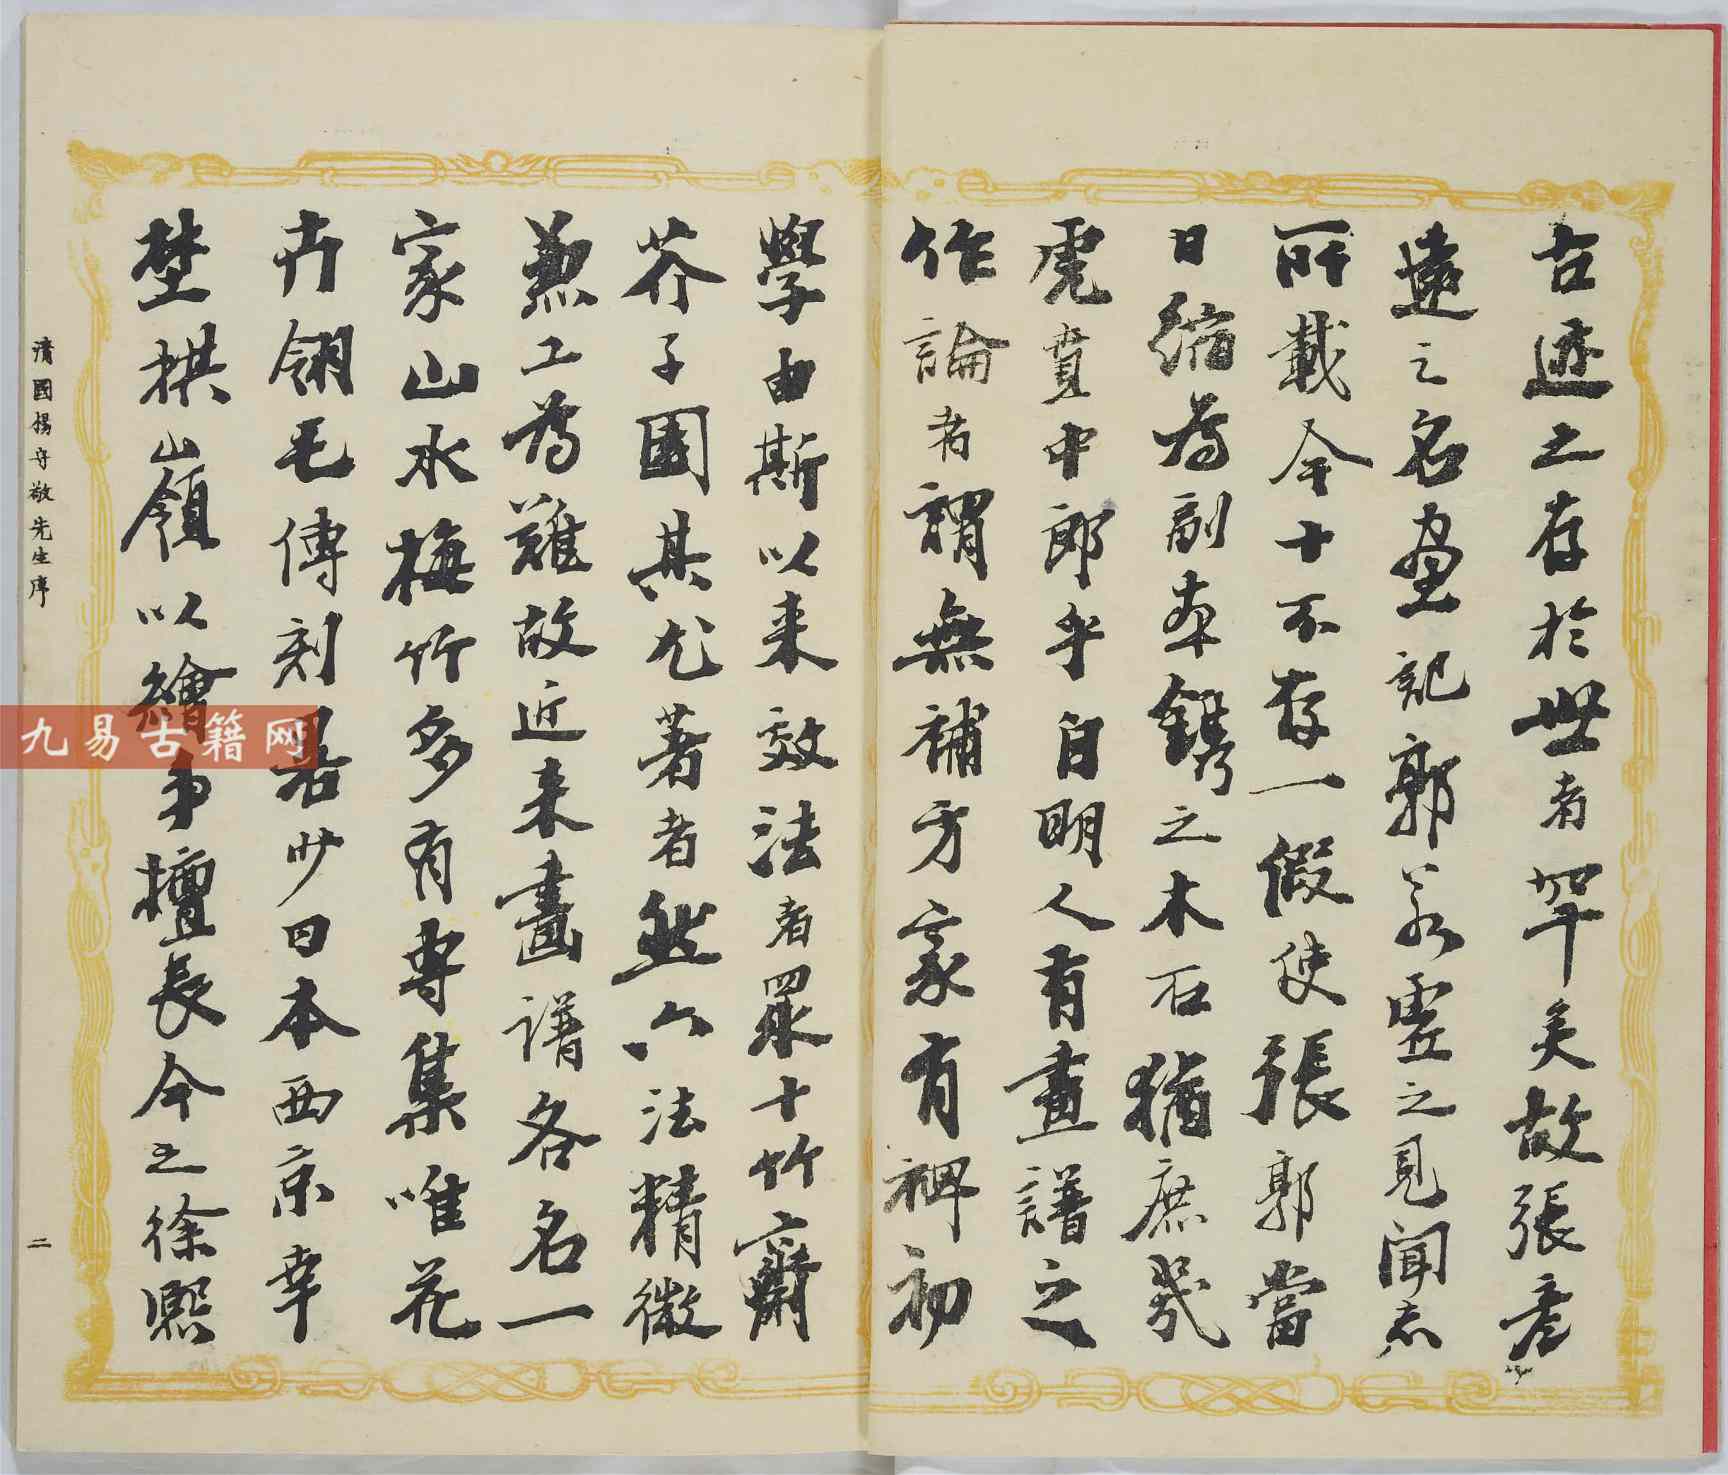 古迹之存於世者罕矣故張彥
遠之名畫記郭若虛之見聞志
所載今十不存一假使張郭當
日縮為副本鐫之木石猶庶幾
虎賁中郎乎自明人有畫譜之
作論者謂無補方家有裨初
學由斯以来效法者眾十竹齋
芥子園其尤著者然六法精微
兼工為難故近来畫譜各名一
家山水梅竹多有專集唯花
卉翎毛傳刻甚少日本西京幸
楳嶺以繪事擅長今之徐熙
清國楊守敬先生序
二
九易古籍网